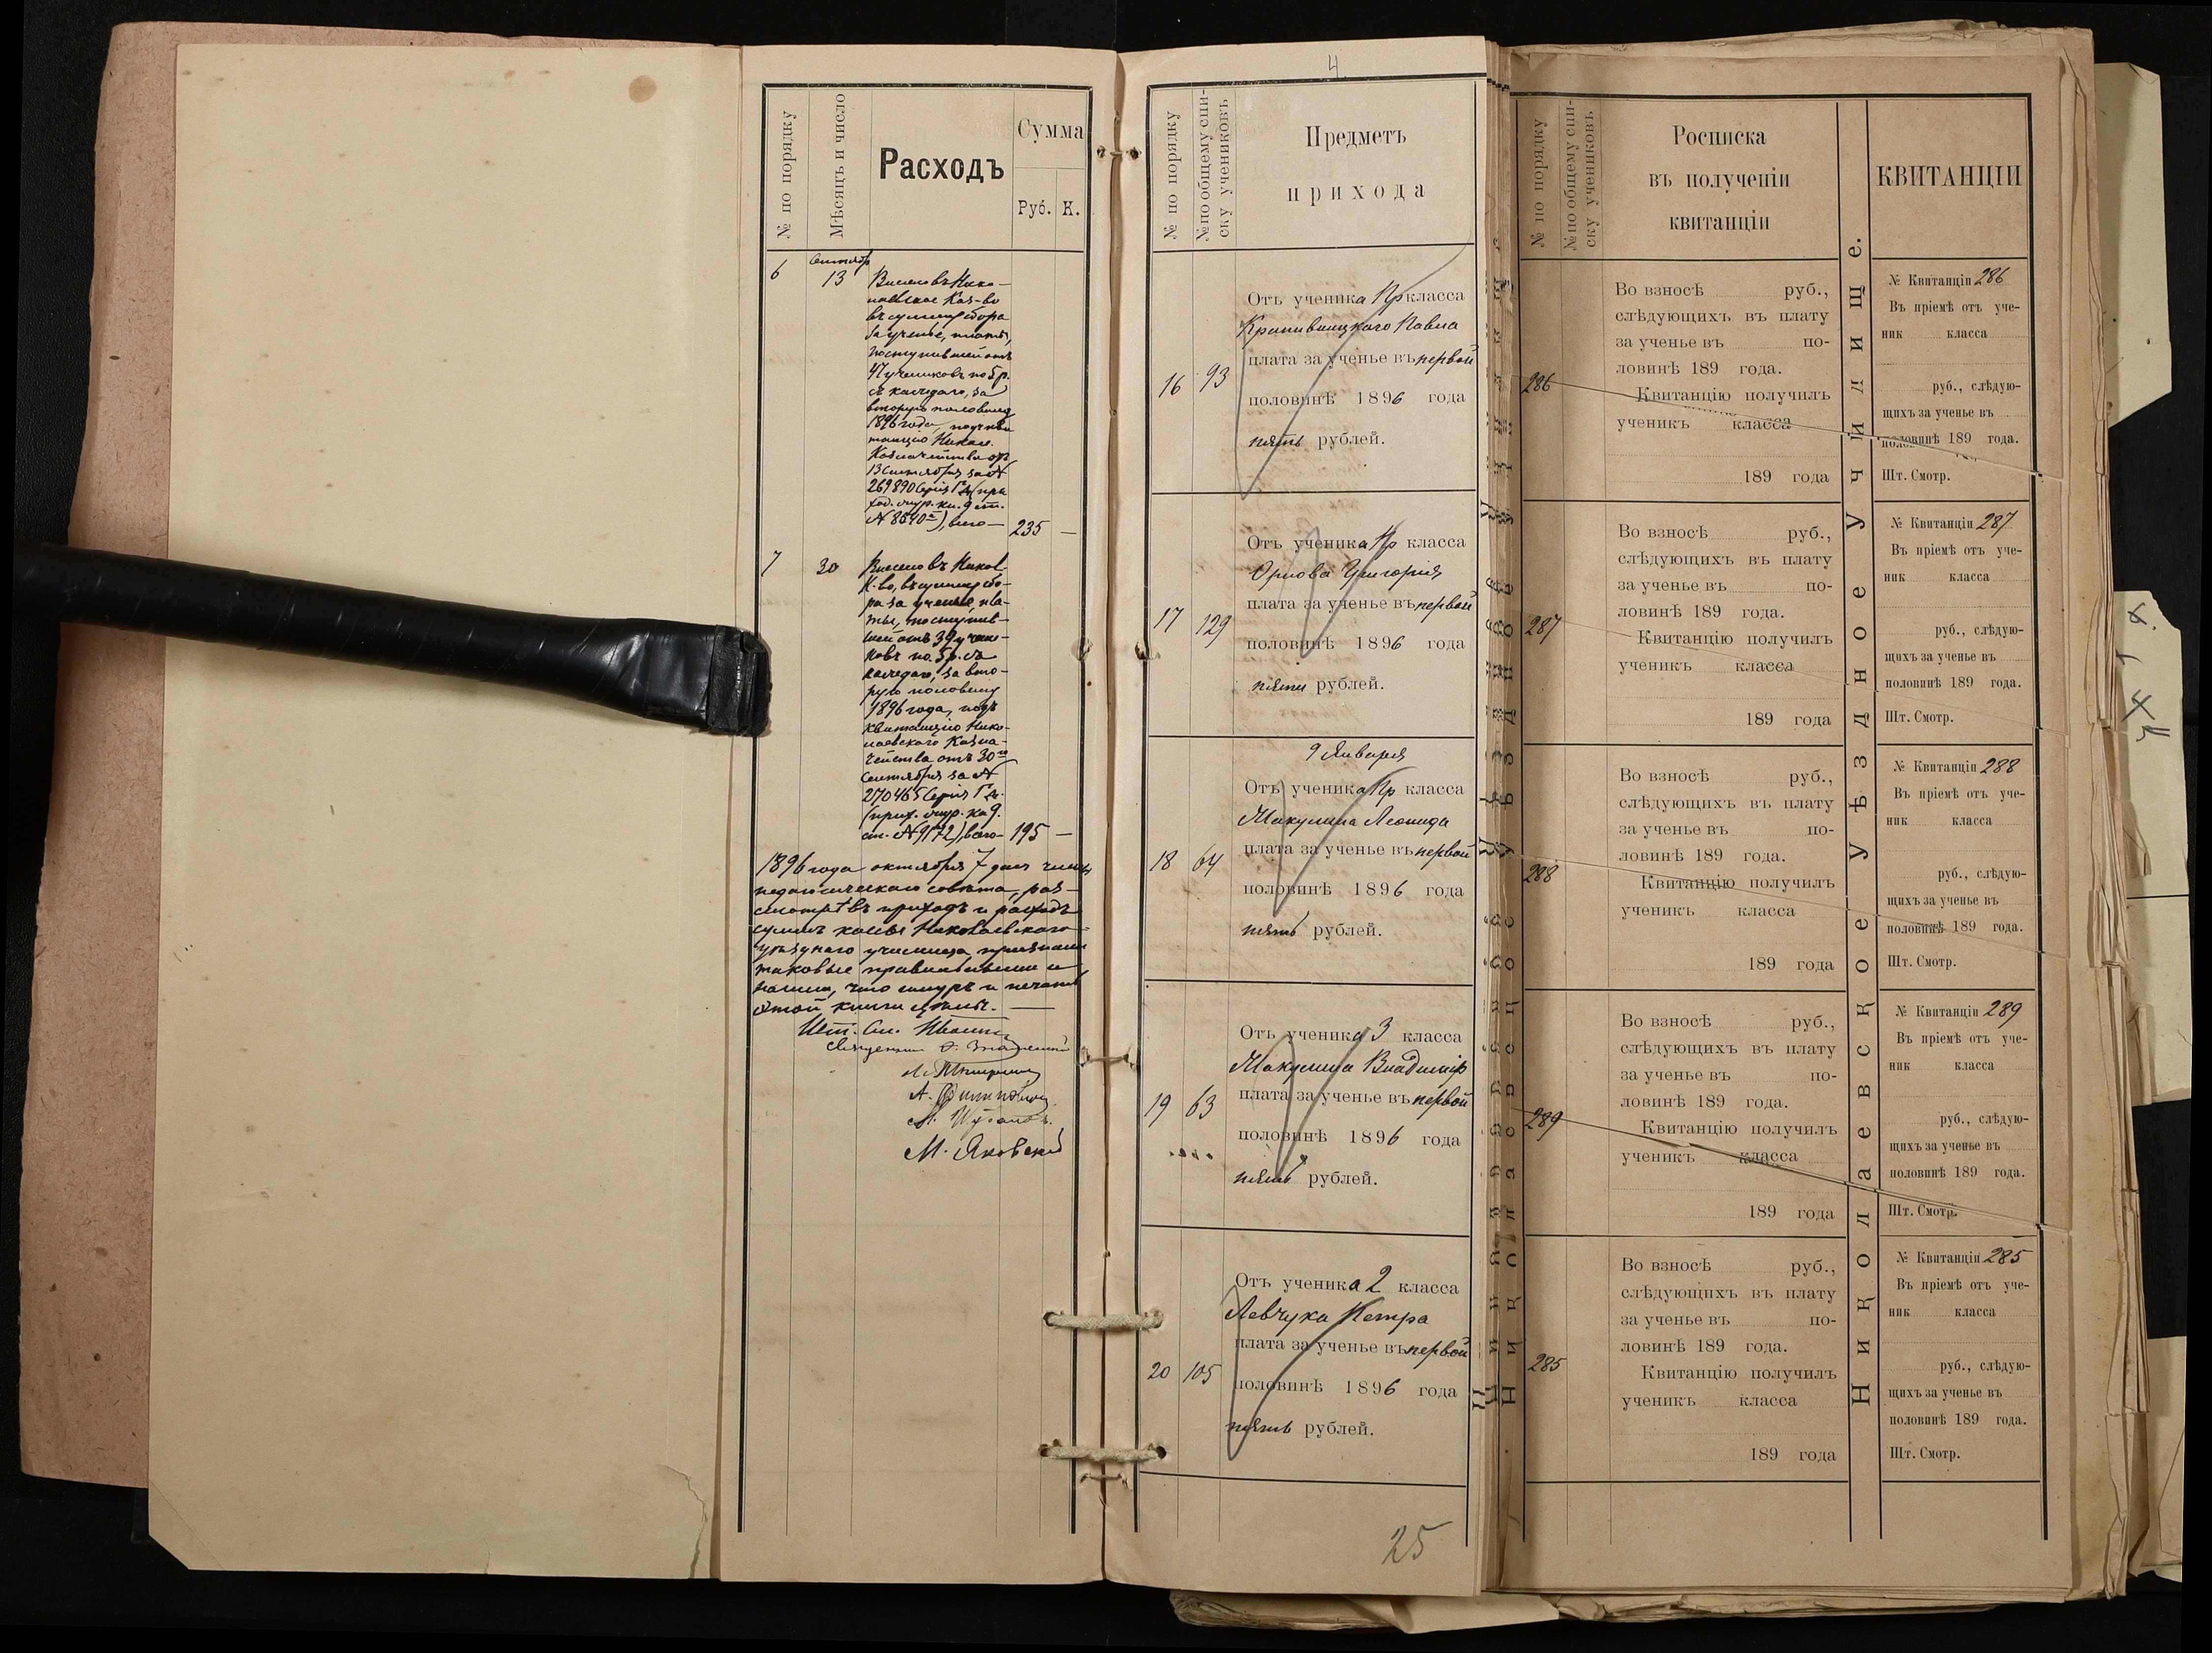 № по порядку
Мѣсяцъ и число
Расходъ
Сумма
Руб. К.
6
Сентябр
13
Внесено въ Нико-
лаевское Каз-во
въ сумму сбора
за ученье, платы,
поступившей отъ
47 учениковъ по 5 р.
съ каждаго, за
вторую половину
1896 года, подъ кви
танцію Никол.
Казначейства отъ
13 Сентября за №
269890 Серія
№ 8540), всего — 235 —
7
30
Внесено въ Никол.
К-во, въ сумму сбо-
ра за ученье, пла-
ты, поступив-
шей отъ 39 учени-
ковъ по 5 р. съ
каждаго, за вто-
рую половину
1896 года, подъ
квитанцію Нико-
лаевскаго Казна-
чейства отъ 30го
Сентября за №
270465 Серія
ст. № 9172), всего — 195 —
1896 года октября 7 дня члены
педагогическаго совѣта, раз-
смотрѣвъ приходъ и расходъ
суммъ Николаевскаго
уѣзднаго училища, признали
таковые правильными и
нашли, что шнуръ и печать
этой книги цѣлы. —
Шт. См.
Священникъ
М. Яновскій
4
№ по порядку
№ по общему спи-
ску учениковъ
Предметъ
прихода
16
93
Отъ ученика Пр класса
Крапивницкаго Павла
плата за ученье въ первой
половинѣ 1896 года
пять рублей.
17
129
Отъ ученика Пр класса
Орлова Григорія
плата за ученье въ первой
половинѣ 1896 года
пять рублей.
9 Января
18
64
Отъ ученика Пр класса
Макулина Леонида
плата за ученье въ первой
половинѣ 1896 года
пять рублей.
19
63
Отъ ученика 3 класса
Макулина Владимір
плата за ученье въ первой
половинѣ 1896 года
пять рублей.
20
105
Отъ ученика 2 класса
Левчука Петра
плата за ученье въ первой
половинѣ 1896 года
пять рублей.
25
№ по порядку
№ по общему спи-
ску учениковъ
Росписка
въ полученіи
квитанціи
286
Во взносѣ руб.,
слѣдующихъ въ плату
за ученье въ по-
ловинѣ 189 года.
Квитанцію получилъ
ученикъ класса
189 года
287
Во взносѣ руб.,
слѣдующихъ въ плату
за ученье въ по-
ловинѣ 189 года.
Квитанцію получилъ
ученикъ класса
189 года
288
Во взносѣ руб.,
слѣдующихъ въ плату
за ученье въ по-
ловинѣ 189 года.
Квитанцію получилъ
ученикъ класса
189 года
289
Во взносѣ руб.,
слѣдующихъ въ плату
за ученье въ по-
ловинѣ 189 года.
Квитанцію получилъ
ученикъ класса
189 года
285
Во взносѣ руб.,
слѣдующихъ въ плату
за ученье въ по-
ловинѣ 189 года.
Квитанцію получилъ
ученикъ класса
189 года
Николаевское Уѣздное Училище.
КВИТАНЦІИ
№ Квитанціи 286
Въ пріемѣ отъ уче-
ник класса
руб., слѣдую-
щихъ за ученье въ
половинѣ 189 года.
Шт. Смотр.
№ Квитанціи 287
Въ пріемѣ отъ уче-
ник класса
руб., слѣдую-
щихъ за ученье въ
половинѣ 189 года.
Шт. Смотр.
№ Квитанціи 288
Въ пріемѣ отъ уче-
ник класса
руб., слѣдую-
щихъ за ученье въ
половинѣ 189 года.
Шт. Смотр.
№ Квитанціи 289
Въ пріемѣ отъ уче-
ник класса
руб., слѣдую-
щихъ за ученье въ
половинѣ 189 года.
Шт. Смотр.
№ Квитанціи 285
Въ пріемѣ отъ уче-
ник класса
руб., слѣдую-
щихъ за ученье въ
половинѣ 189 года.
Шт. Смотр.